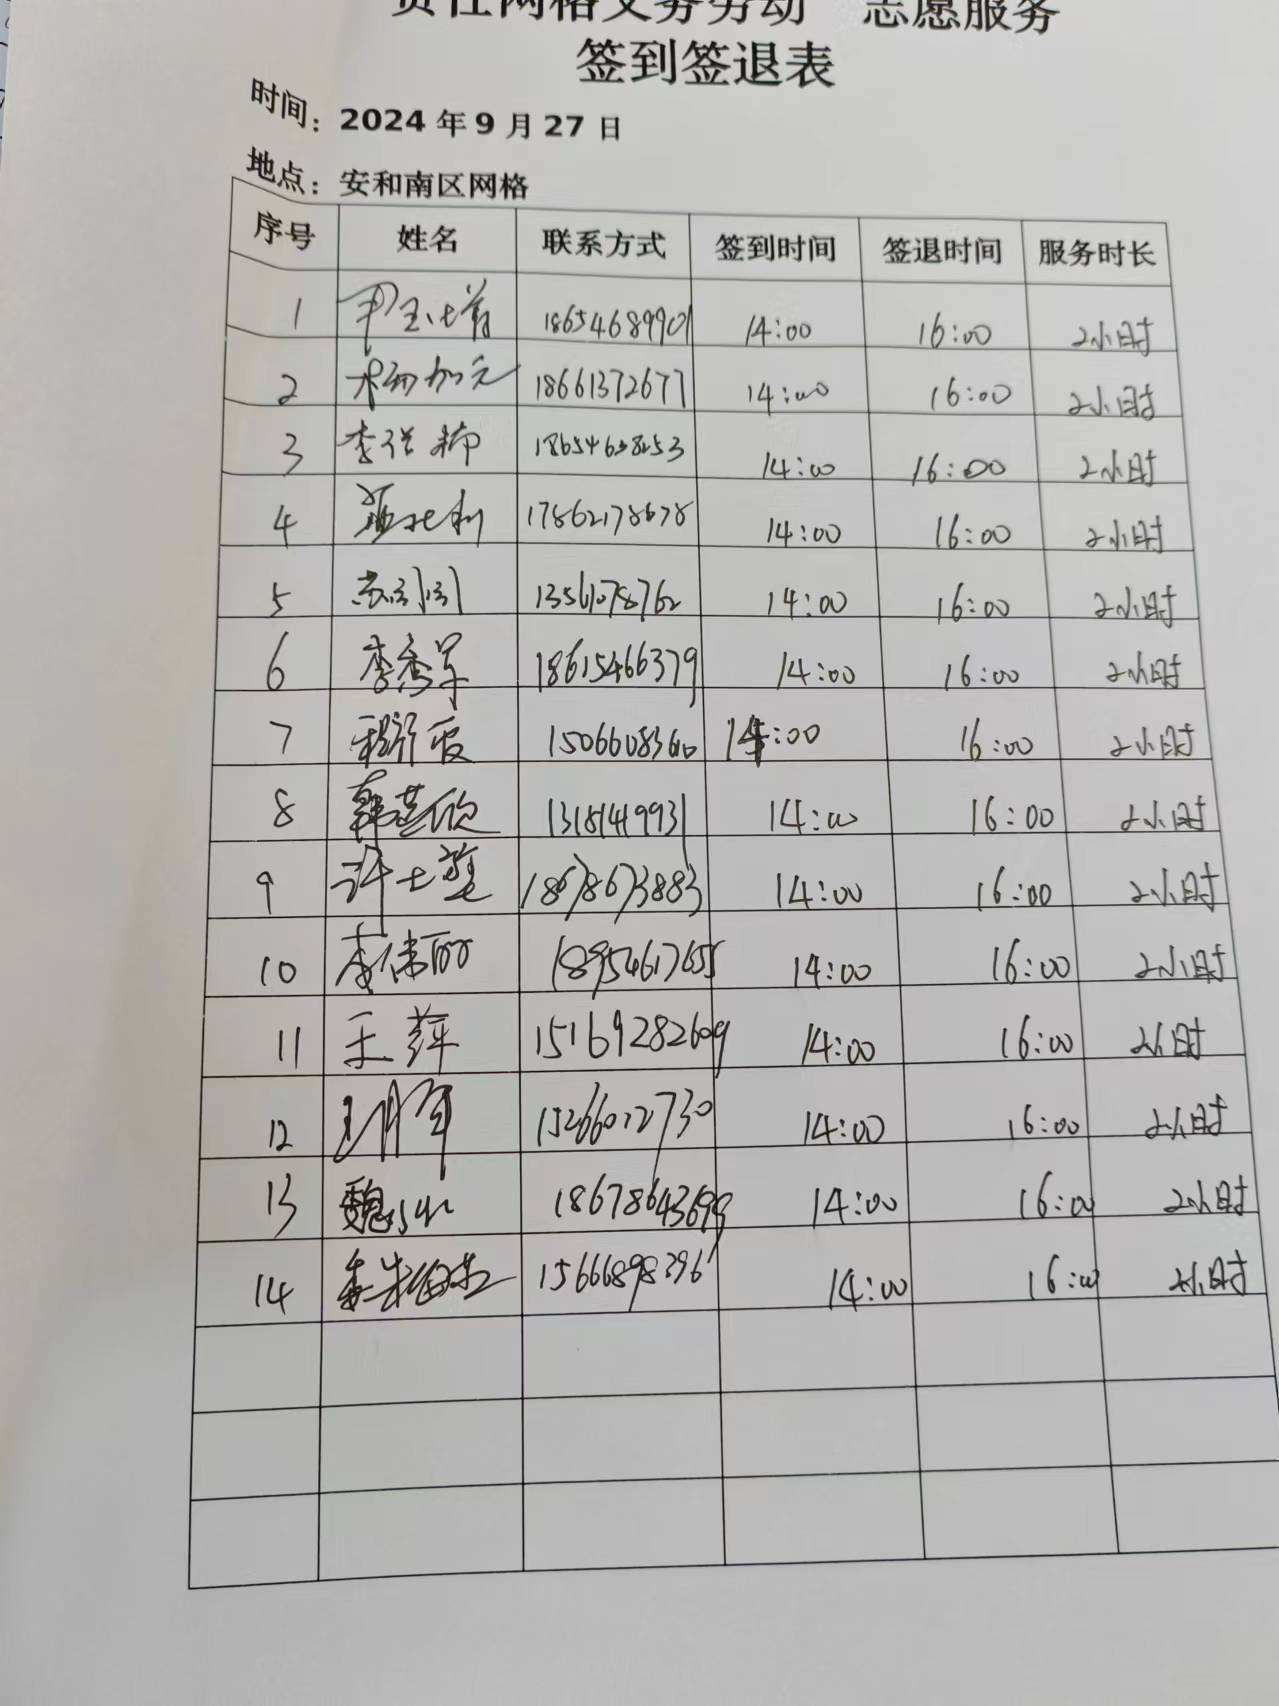 责任网格义务劳动 志愿服务
签到签退表
时间：2024年9月27日
地点：安和南区网格
序号 姓名 联系方式 签到时间 签退时间 服务时长
1 18654689901 14:00 16:00 2小时
2 杨加元 18661372677 14:00 16:00 2小时
3 14:00 16:00 2小时
4 17862178678 14:00 16:00 2小时
5 13561078762 14:00 16:00 2小时
6 李秀军 18615466379 14:00 16:00 2小时
7 14:00 16:00 2小时
8 13181419931 14:00 16:00 2小时
9 18678673883 14:00 16:00 2小时
10 李伟丽 18954617655 14:00 16:00 2小时
11 王萍 15169282609 14:00 16:00 2小时
12 15266022730 14:00 16:00 2小时
13 18678643699 14:00 16:00 2小时
14 15666898396 14:00 16:00 2小时